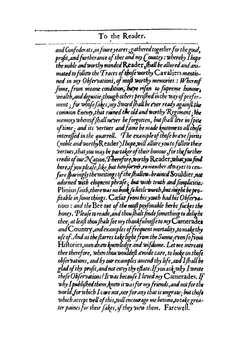 To the Reader.
and Confederats, in foure yeares; gathered together for the good,
profit, and furtherance of thee and my Country: whereby I hope
the noble and worthy minded Reader, shall be allured and ani-
mated to follow the Traces of those worthy Cavaliers mentio-
ned in my Observations, of most worthy memories: Whereof
some, from meane condition, have risen to supreme honour,
wealth, and dignitie, though others perished in the way of prefer-
ment; for whose sakes, my Sword shall be ever ready against the
common Enemy, that ruined the old and worthy Regiment; the
memory whereof shall never be forgotten, but shall live in spite
of time; and its vertues and fame be made knowne to all those
interessed in the quarrell. The examples of those brave spirits
(noble and worthy Reader) I hope, will allure you to follow their
vertues, that you may be partaker of their honour, for the further
credit of our Nation. Therefore, worthy Reader, what you find
here, if you please, like; but howsoever, remember alwayes to cen-
sure sparingly the writings of the shallow-brained Souldier, not
adorned with eloquent phrase; but with truth and simplicitie.
Plinius saith, there was no book so little worth, but might be pro-
fitable in some things. Cæsar from his youth had his Observa-
tions: and the Bee out of the most profitable herbes suckes the
honey. Please to reade, and thou shalt finde something to delight
thee, at least thou shalt see my thankfulnesse to my Camerades
and Country, and examples of frequent mortality, to make thy
use of. And as the starres take light from the Sunne; even so from
Histories, men draw knowledge and wisdome. Let me intreate
thee therefore, when thou wouldest avoide care, to looke in these
observations, and by our examples amend thy life, and I shall be
glad of thy profit, and not envy thy estate. If you ask, why I wrote
these Observations? It was because I loved my Camerades. If
why I published them, know it was for my friends, and not for the
world, for which I care not, nor for any that is ungrate, but those
which accept well of this, will encourage me betime, to take grea-
ter paines for their sakes, if they view them. Farewell.